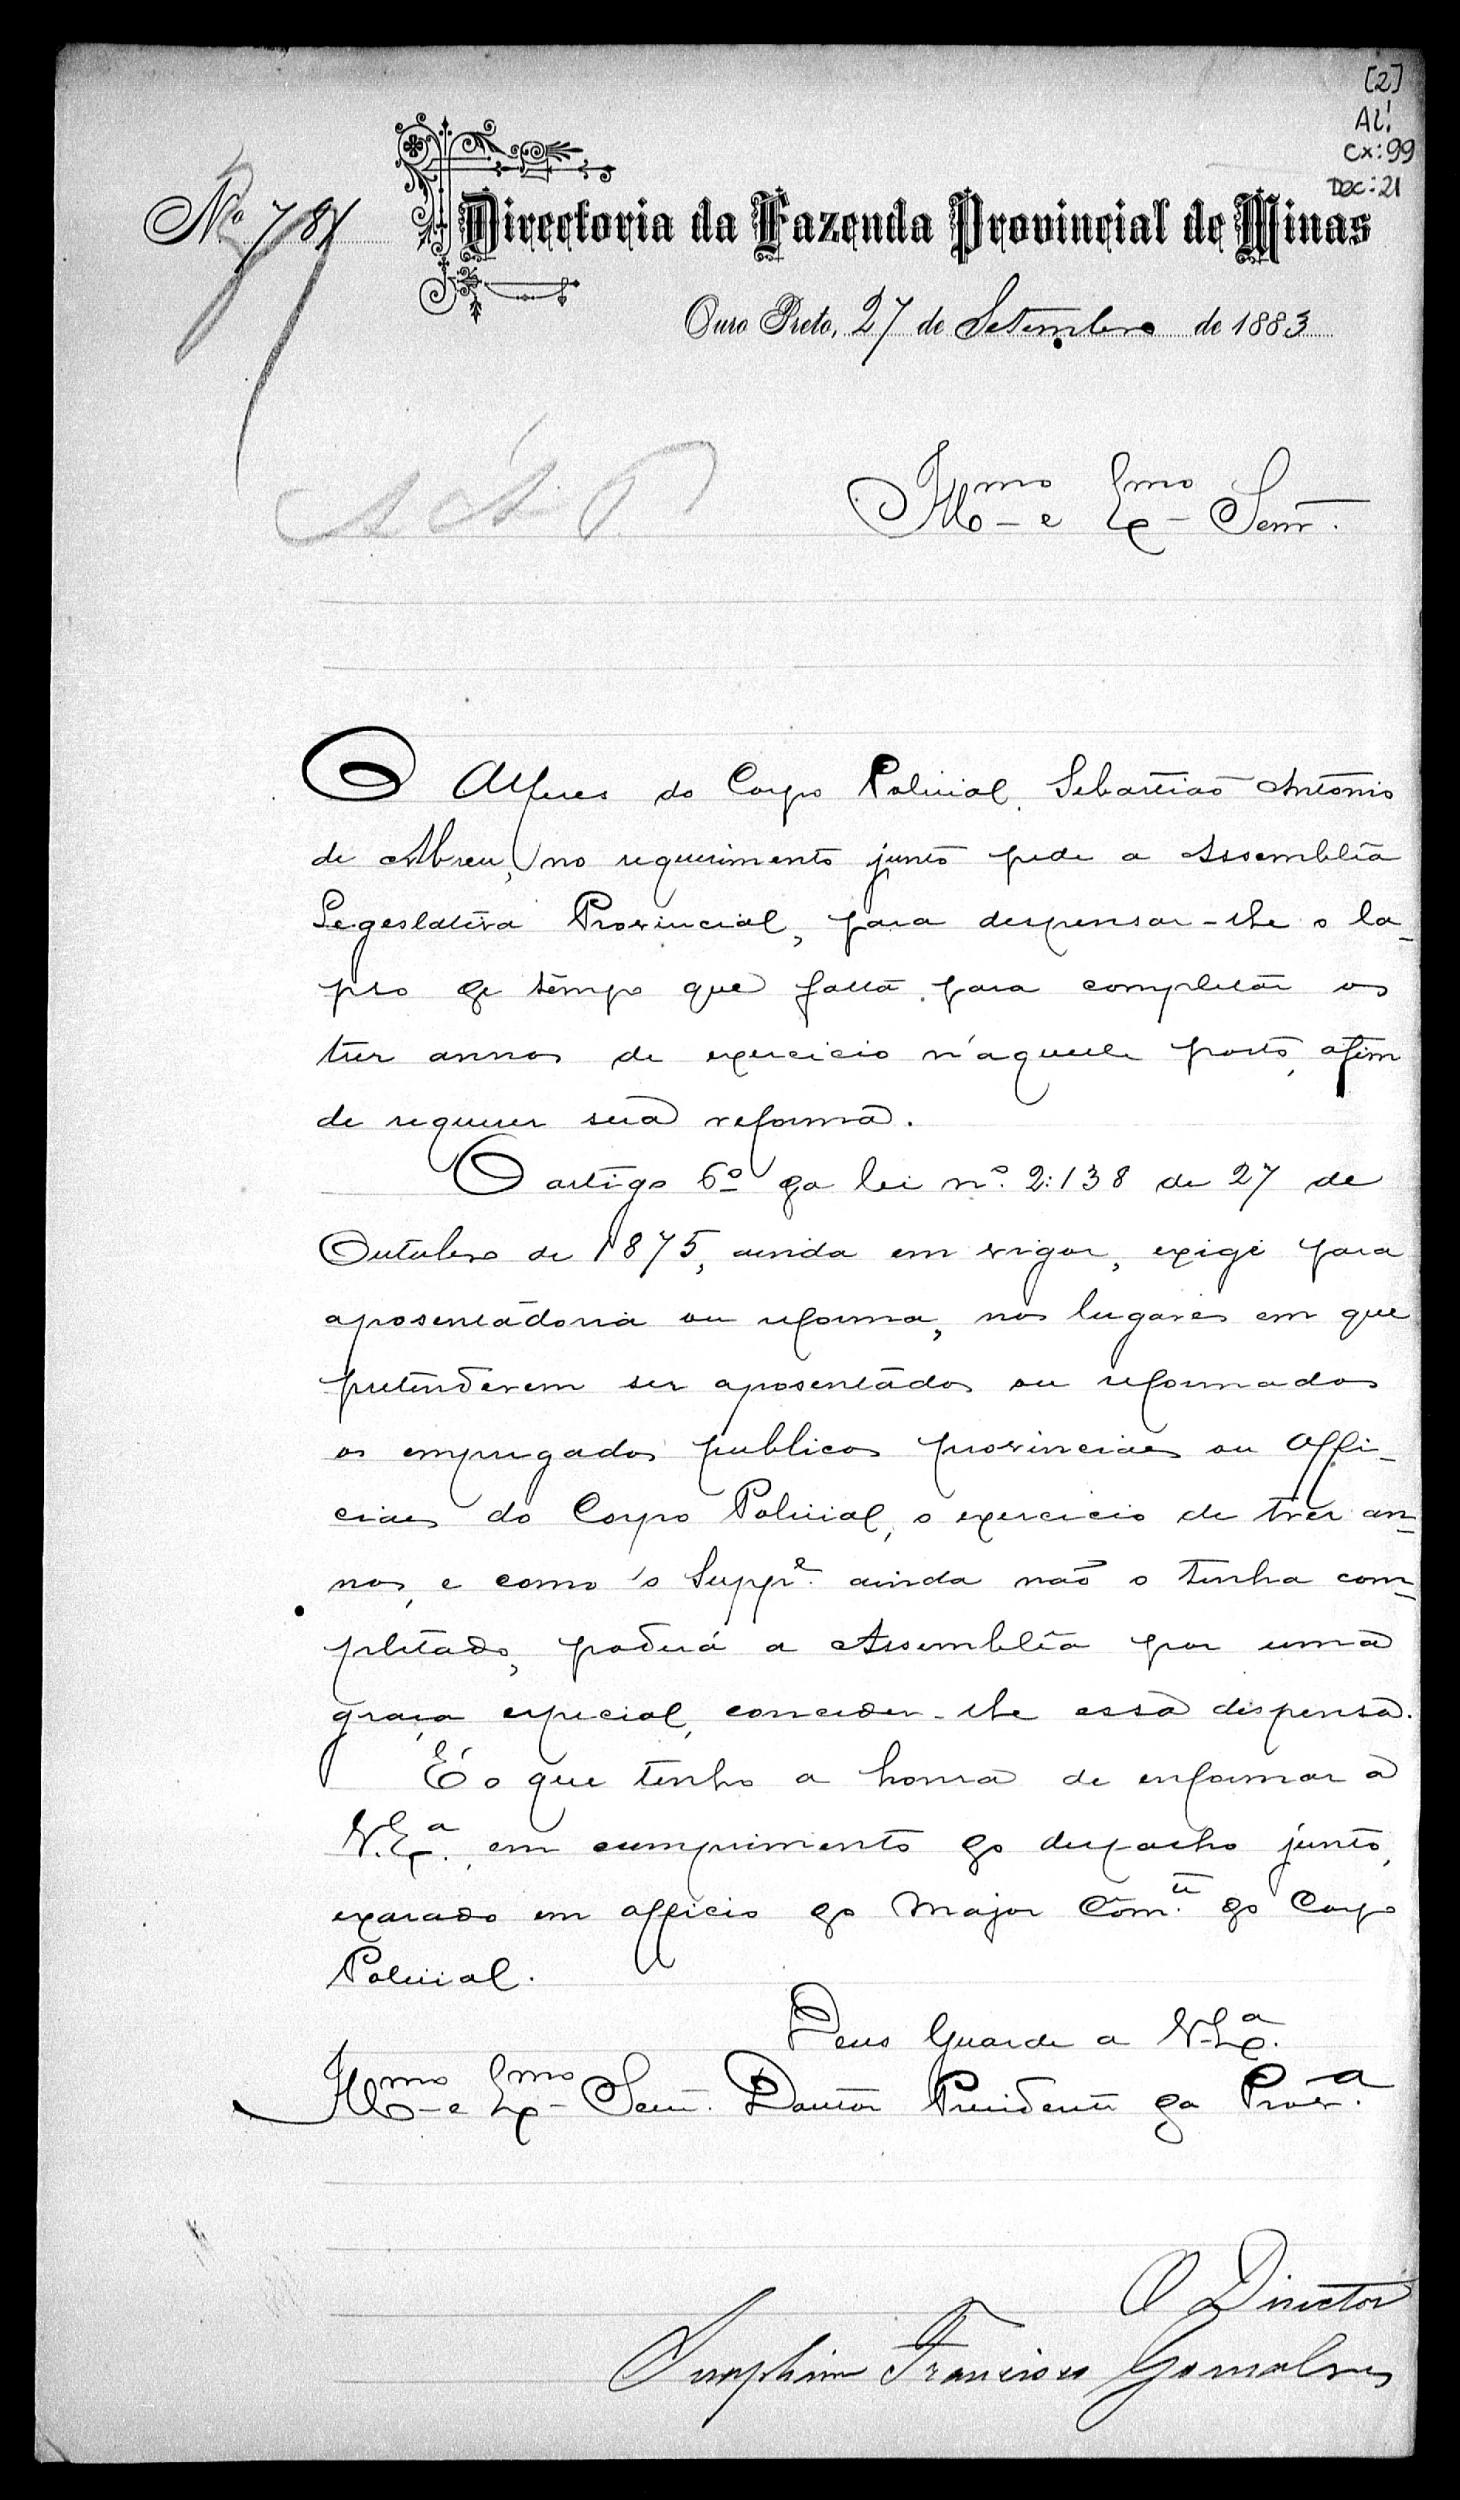 [2]
Al!
Cx: 99
Doc: 21
Nº 781
Directoria da Fazenda Provincial de Minas
Ouro Preto, 27 de Setembro de 1883
A A P
Illmo e Exmo Senr.
O Alferes do Corpo Policial, Sebastião Antonio
de Abreu, no requerimento junto pede a Assemblea
Legeslativa Provincial, para despensar-lhe o la-
pso de tempo que falta para completar os
tres annos de exercicio n'aquelle posto, afim
de requerer sua reforma.
O artigo 6º da lei nº 2:138 de 27 de
Outubro de 1875, ainda em vigor, exige para
aposentadoria ou reforma, nos lugares em que
pretenderem ser aposentados ou reformados
os empregados publicos provinciaes ou Offi-
ciaes do Corpo Policial, o exercicio de tres an-
nos, e como o Suppe. ainda não o tenha com-
pletado, poderá a Assemblea por uma
graça especial, conceder-lhe essa dispensa.
É o que tenho a honra de enformar a
V. Exa., em cumprimento do despacho junto,
exarado em officio do Major Comte. do Corpo
Policial.
Deus Guarde a V. Exa.
Illmo e Exmo Senr. Doutor Presidente da Prova.
O Director
Seraphim Francisco Gonsalves